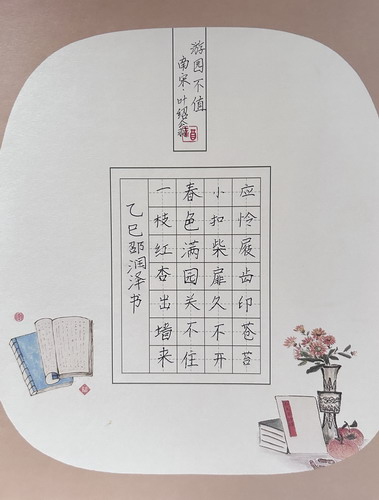 游园不值
南宋·叶绍翁
应怜屐齿印苍苔
小扣柴扉久不开
春色满园关不住
一枝红杏出墙来
乙巳邵润泽书